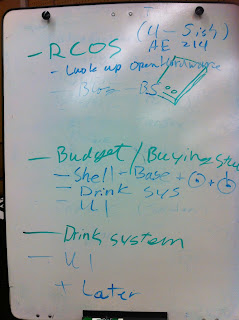 (4-5ish)
- RCOS AE 214
- Look up open hardware
- Blog - BS
- Budget/Buying Stu
- Shell - Base +
- Drink sys
- UI
- Drink system
- UI
+ Later